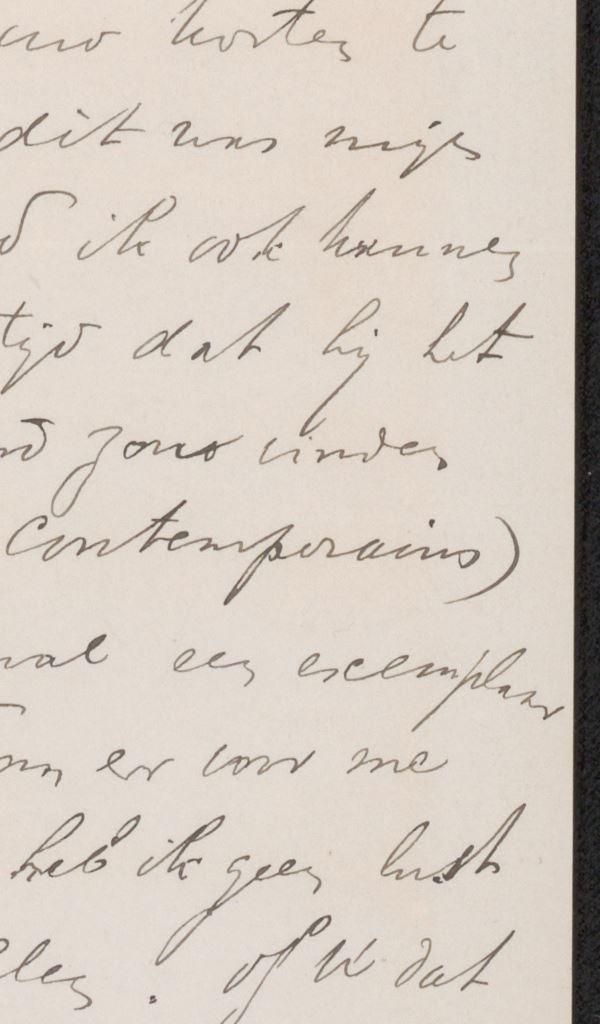 uw korten te
dit was mijn
ik ook kunnen
tijd dat hij het
zou vinden
contemporains)
wal een exemplaar
er voor me
heb ik geen lust
of U dat